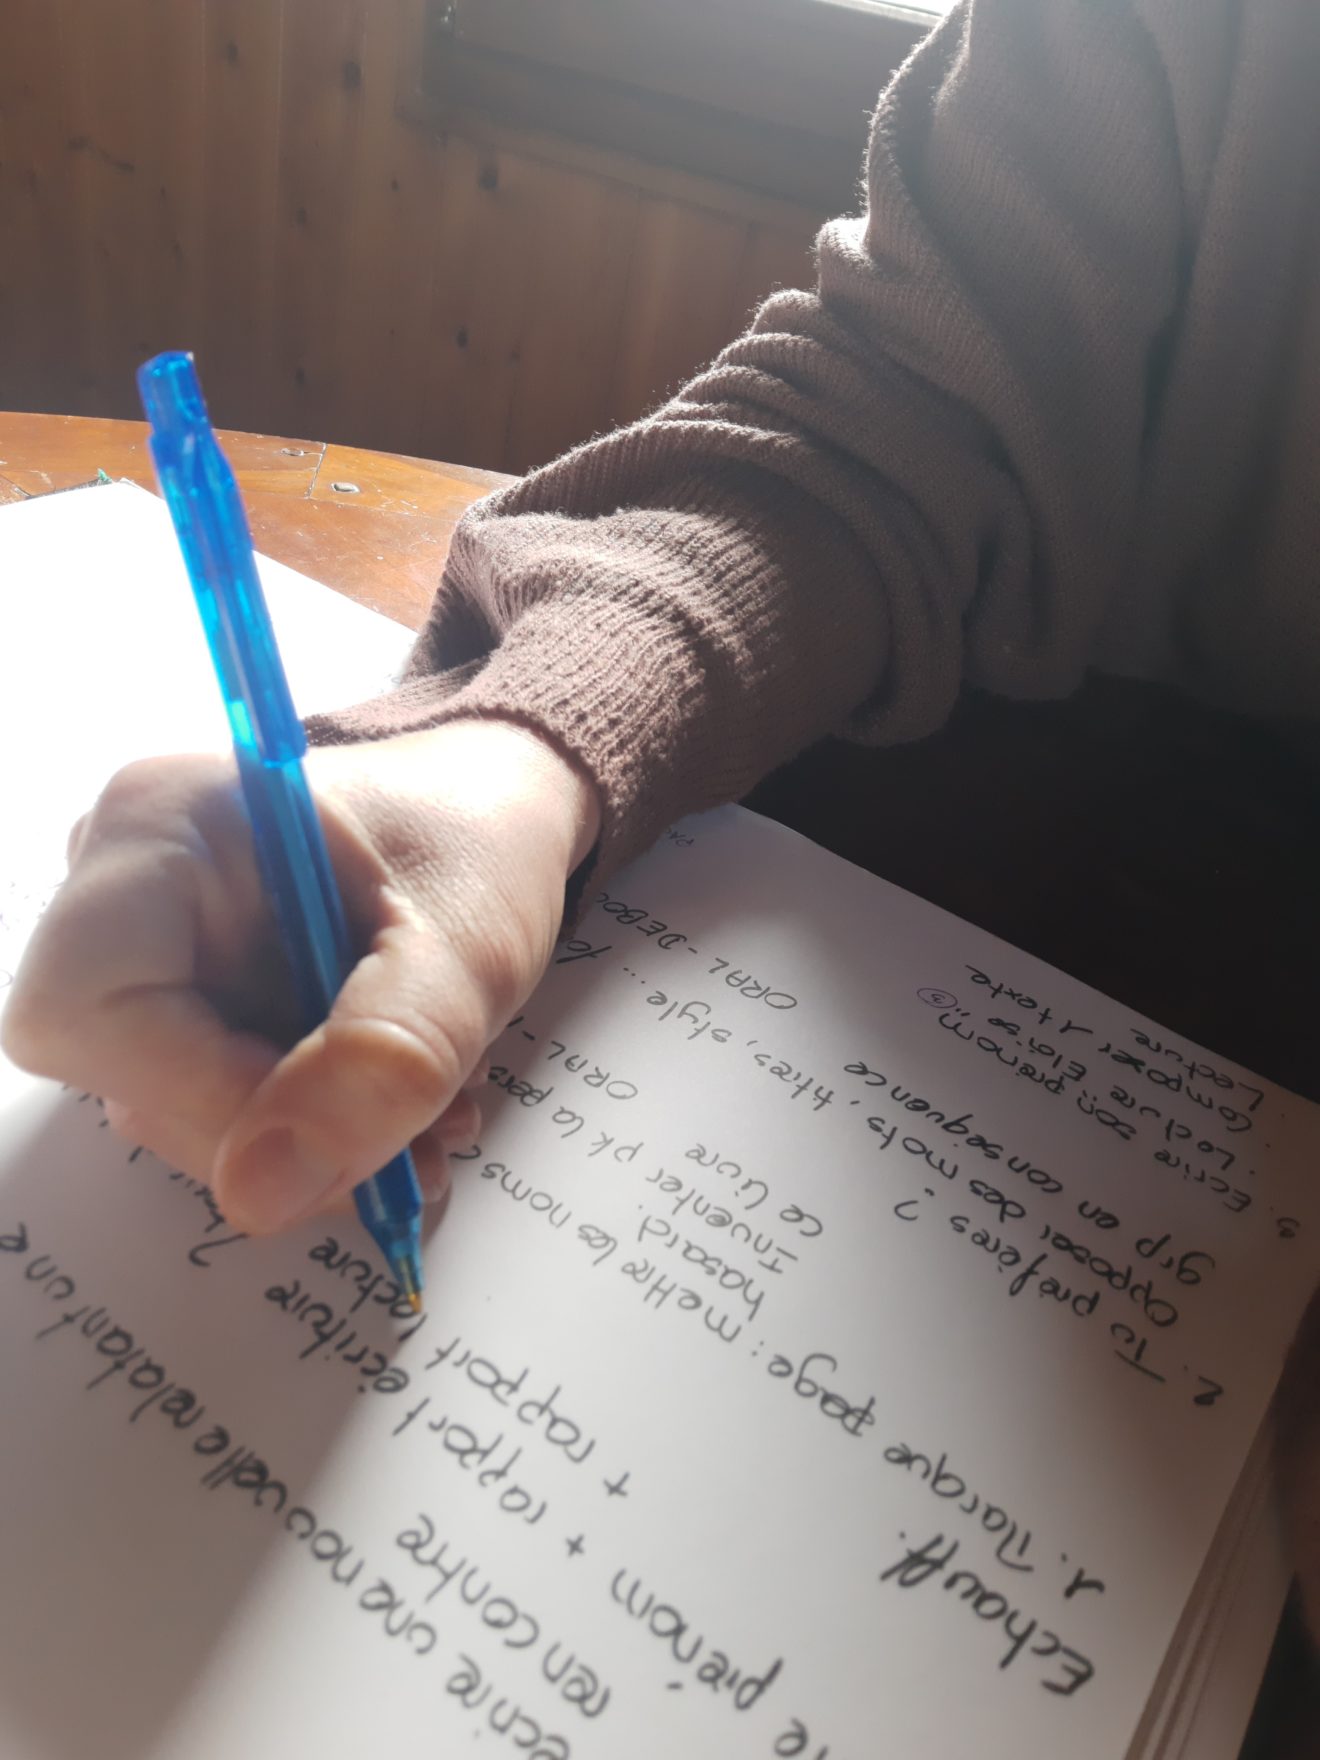 écrire une nouvelle relatant une
rencontre
prénom + rapport écriture
+ rapport lecture
Echauff.
1. Marque page : mettre les noms
hasard.
Inventer pk la pers
ce livre
ORAL -
2. Tu préfères ?
Opposer des mots, titres, style...
grp en conséquence
ORAL - DEBO
3. Ecrire son prénom
. Lecture Eloïse
. Composer 1 texte
. Lecture